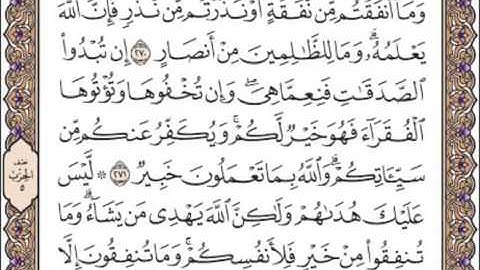 وَمَآ أَنفَقْتُم مِّن نَّفَقَةٍ أَوْ نَذَرْتُم مِّن نَّذْرٍ فَإِنَّ ٱللَّهَ
يَعْلَمُهُۥ ۗ وَمَا لِلظَّٰلِمِينَ مِنْ أَنصَارٍ ٢٧٠ إِن تُبْدُوا۟
ٱلصَّدَقَٰتِ فَنِعِمَّا هِىَ ۖ وَإِن تُخْفُوهَا وَتُؤْتُوهَا
ٱلْفُقَرَآءَ فَهُوَ خَيْرٌ لَّكُمْ ۚ وَيُكَفِّرُ عَنكُم مِّن
سَيِّـَٔاتِكُمْ ۗ وَٱللَّهُ بِمَا تَعْمَلُونَ خَبِيرٌ ٢٧١ ۞ لَّيْسَ
عَلَيْكَ هُدَىٰهُمْ وَلَٰكِنَّ ٱللَّهَ يَهْدِى مَن يَشَآءُ ۗ وَمَا
تُنفِقُوا۟ مِنْ خَيْرٍ فَلِأَنفُسِكُمْ ۚ وَمَا تُنفِقُونَ إِلَّا
الحزب
٥